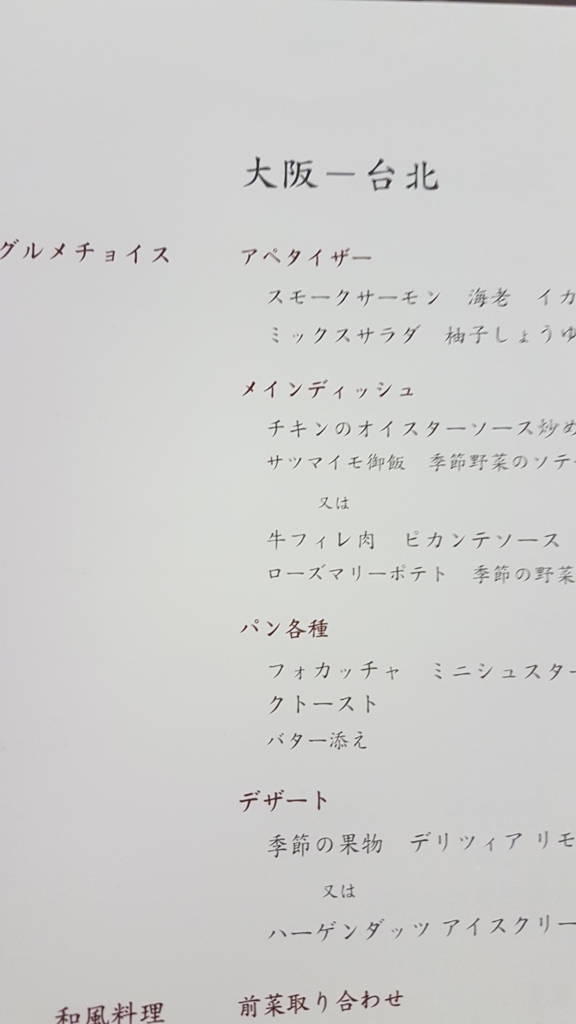 大阪－台北
グルメチョイス
アペタイザー
スモークサーモン 海老 イカ
ミックスサラダ 柚子しょうゆ
メインディッシュ
チキンのオイスターソース炒め
サツマイモ御飯 季節野菜のソテー
又は
牛フィレ肉 ピカンテソース
ローズマリーポテト 季節の野菜
パン各種
フォカッチャ ミニシュスター
クトースト
バター添え
デザート
季節の果物 デリツィア リモ
又は
ハーゲンダッツ アイスクリー
和風料理
前菜取り合わせ